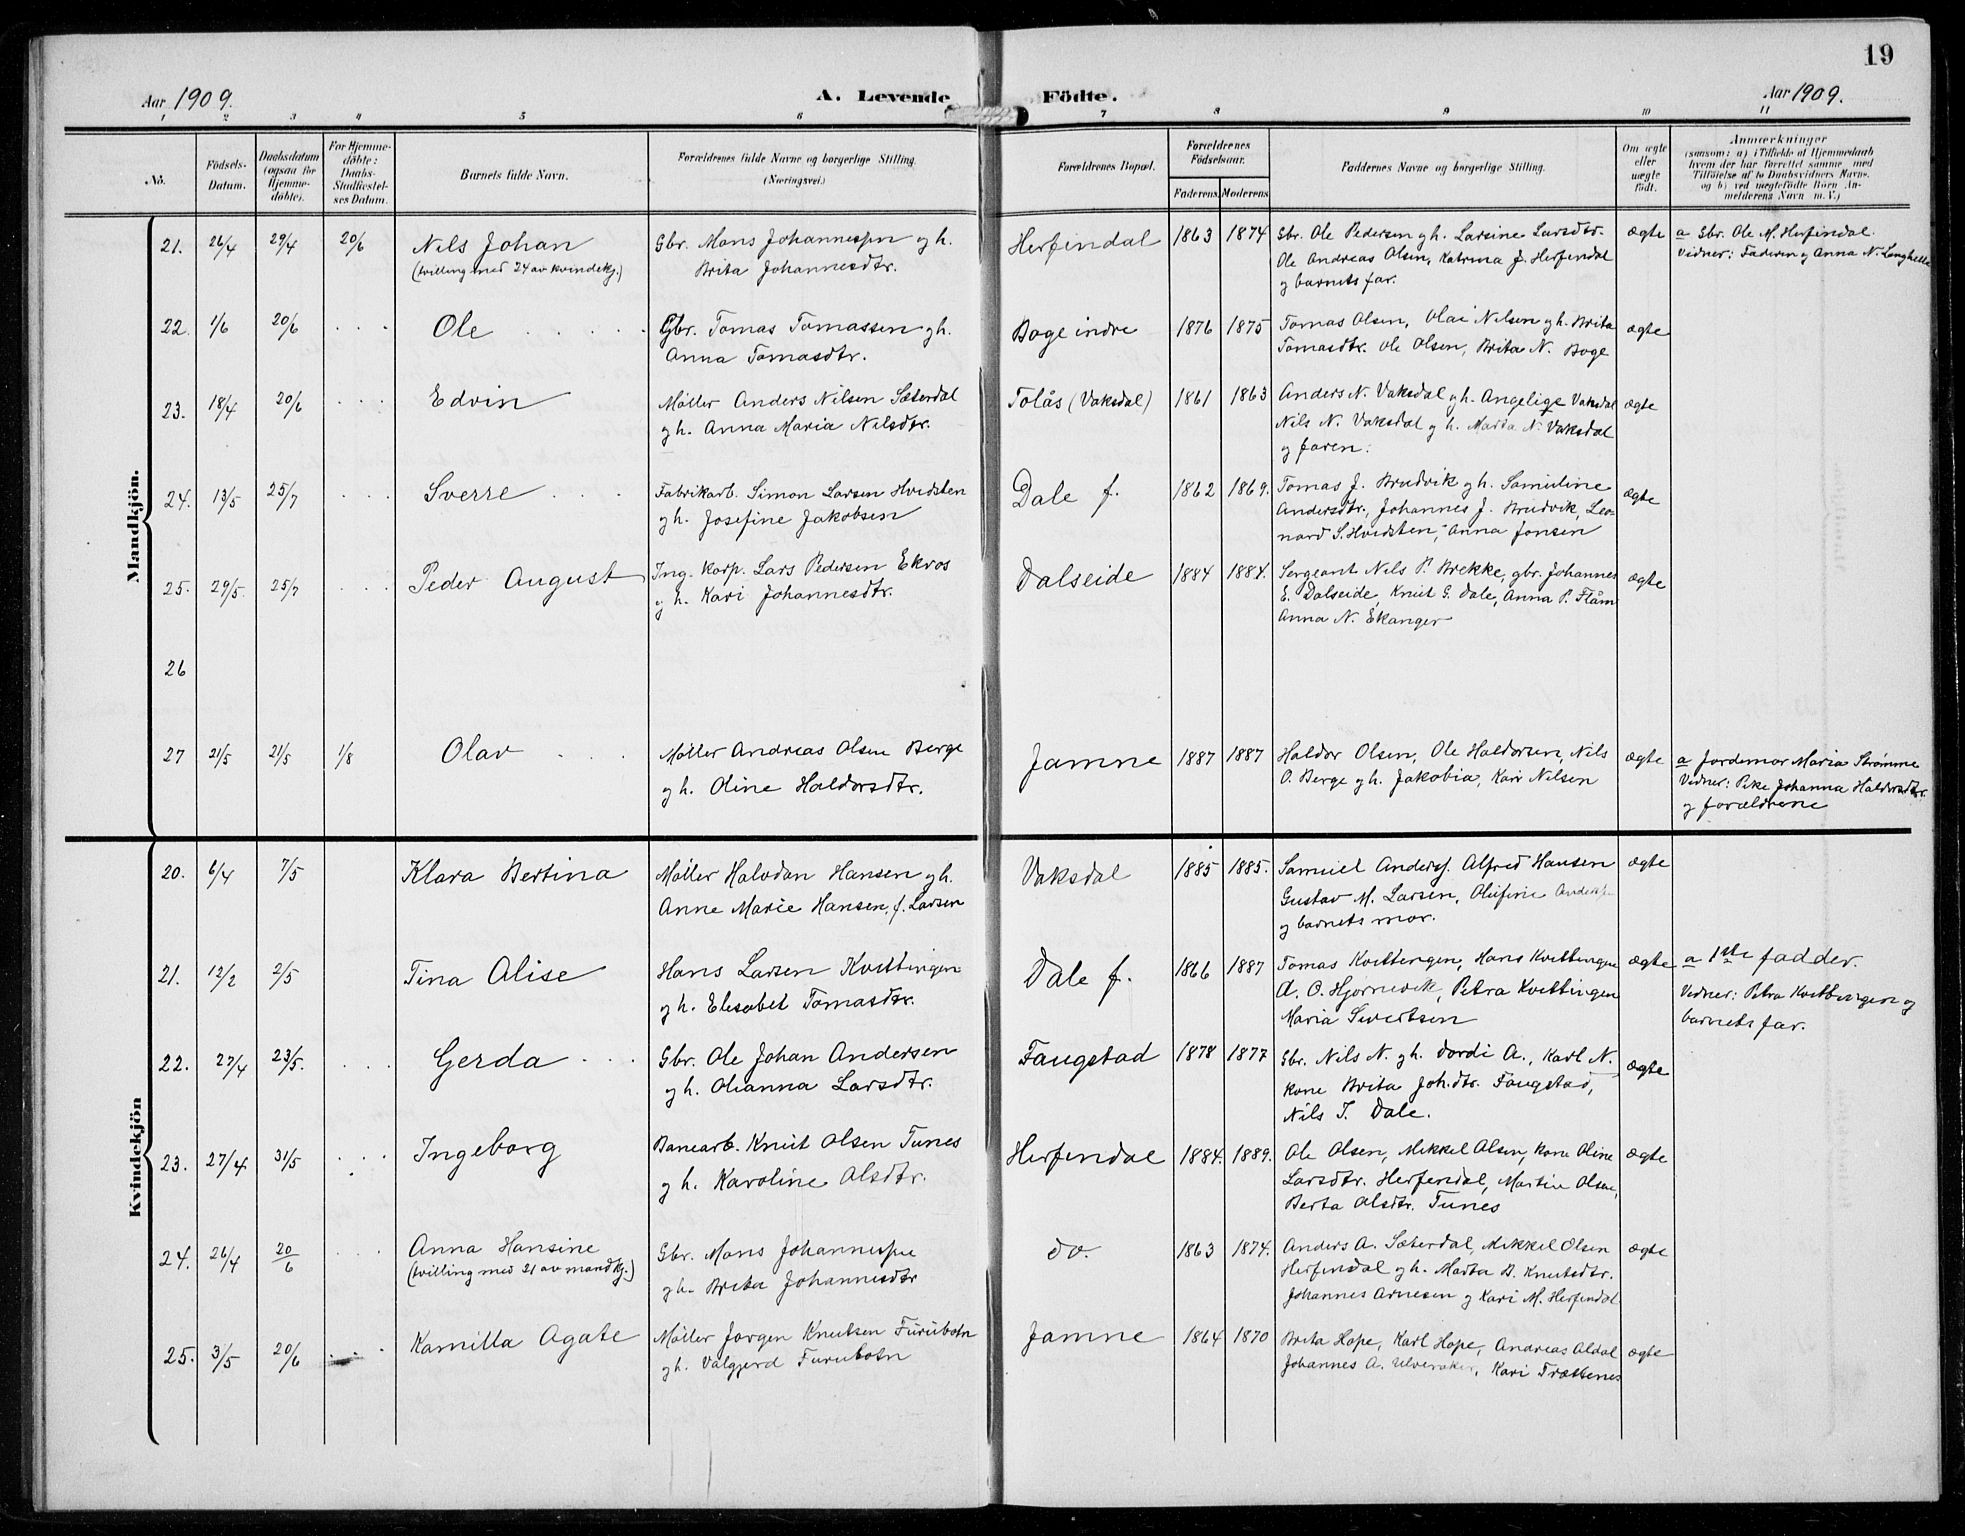 19
Aar 1909.
A. Levende Födte.
Aar 1909.
1 2 3 4 5 6 7 8 9 10 11
No.
Födsels-
Datum.
Daabsdatum
(ogsaa for
Hjemme-
døbte).
For Hjemme-
døbte:
Daabs-
Stadfæstel-
ses Datum.
Barnets fulde Navn.
Forældrenes fulde Navne og borgerlige Stilling.
(Næringsvei.)
Forældrenes Bopæl.
Forældrenes
Födselsaar.
Faderens. Moderens.
Faddernes Navne og borgerlige Stilling.
Om ægte
eller
uægte
født.
Anmærkninger
(saasom: a) i Tilfælde af Hjemmedaab
hvem der har forrettet samme, med
Tilföielse af to Daabsvidners Navne.
og b) ved uægtefødte Börn An-
melderens Navn m. V.)
Mandkjön.
21. 26/4 29/4 20/6 Nils Johan
(tvilling med 24 av kvindekj.)
Gbr. Mons Johannessen og h.
Brita Johannesdtr.
Herfindal 1863 1874
Gbr. Ole Pedersen og h. Larsine Larsdtr.
Ole Andreas Olsen, Katrina J. Herfindal
og barnets far.
ægte
a Gbr. Ole M. Herfindal.
Vidner: Faderen og Anna N. Langhelle
22. 1/6 20/6 Ole
Gbr. Tomas Tomassen og h.
Anna Tomasdtr.
Boge indre 1876 1875
Tomas Olsen, Olai Nilsen og h. Brita
Tomasdtr. Ole Olsen, Brita N. Boge
ægte
23. 18/4 20/6 Edvin
Møller Anders Nilsen Sæterdal
og h. Anna Maria Nilsdtr.
Tolås (Vaksdal) 1861 1863
Anders N. Vaksdal og h. Angelige Vaksdal
Nils N. Vaksdal og h. Marta N. Vaksdal
og faren.
ægte
24. 13/5 25/7 Sverre
Fabrikarb. Simon Larsen Hvidsten
og h. Josefine Jakobsen
Dale f. 1862 1869.
Tomas J. Brudvik og h. Samuline
Andersdtr., Johannes J. Brudvik, Leo-
nard S. Hvidsten, Anna Jonsen
ægte
25. 29/5. 25/7 Peder August
Ing. korp. Lars Pedersen Ekros
og h. Kari Johannesdtr.
Dalseide 1884 1884.
Sergeant Nils P. Brekke, gbr. Johannes
E. Dalseide, Knut G. Dale, Anna P. Flåm
Anna N. Ekanger
ægte
26
27 21/5 21/5 1/8 Olav
Møller Andreas Olsen Berge
og h. Oline Haldorsdtr.
Jamne 1887 1887
Haldor Olsen, Ole Haldorsen, Nils
O. Berge og h. Jakobia, Kari Nilsen
ægte
a Jordemor Maria Strømme
Vidner: Pike Johanna Haldorsdtr.
og forældrene
Kvindekjön
20. 6/4 7/5 Klara Bertina
Møller Halvdan Hansen og h.
Anne Marie Hansen, f. Larsen
Vaksdal 1885 1885.
Samuel Anders. Alfred Hansen
Gustav M. Larsen, Olufine
og barnets mor.
ægte
21. 12/2 2/5 Tina Alise
Hans Larsen Kvittingen
og h. Elisabet Tomasdtr.
Dale f. 1866 1887
Tomas Kvittingen, Hans Kvittingen
A. O. Hjørnevik, Petra Kvittingen
Maria Sivertsen
ægte
a 1ste fadder.
Vidner: Petra Kvittingen og
barnets far.
22. 27/4 23/5. Gerda
Gbr. Ole Johan Andersen
og h. Olianna Larsdtr.
Faugstad 1878 1877
Gbr. Nils N. og h. Dordi A., Karl N.
kone Brita Joh.dtr. Faugstad,
Nils T. Dale.
ægte
23. 27/4 31/5 Ingeborg
Banearb. Knut Olsen Tunes
og h. Karoline Olsdtr.
Herfindal 1884. 1889.
Ole Olsen, Mikkel Olsen, kone Oline
Larsdtr. Herfindal, Martin Olsen,
Berta Olsdtr. Tunes
ægte
24. 26/4 20/6 Anna Hansine
(tvilling med 21 av mandkj.)
Gbr. Mons Johannessen
og h. Brita Johannesdtr
do. 1863 1874.
Anders A. Sæterdal, Mikkel Olsen
Herfindal og h. Marta B. Knutsdtr.
Johannes Arnesen og Kari M. Herfindal
ægte
25. 3/5 20/6 Kamilla Agate
Møller Jørgen Knutsen Furubotn
og h. Valgjerd Furubotn
Jamne 1864 1870
Brita Hope, Karl Hope, Andreas Aldal
Johannes A. Ulveraker, Kari Trættenes
ægte